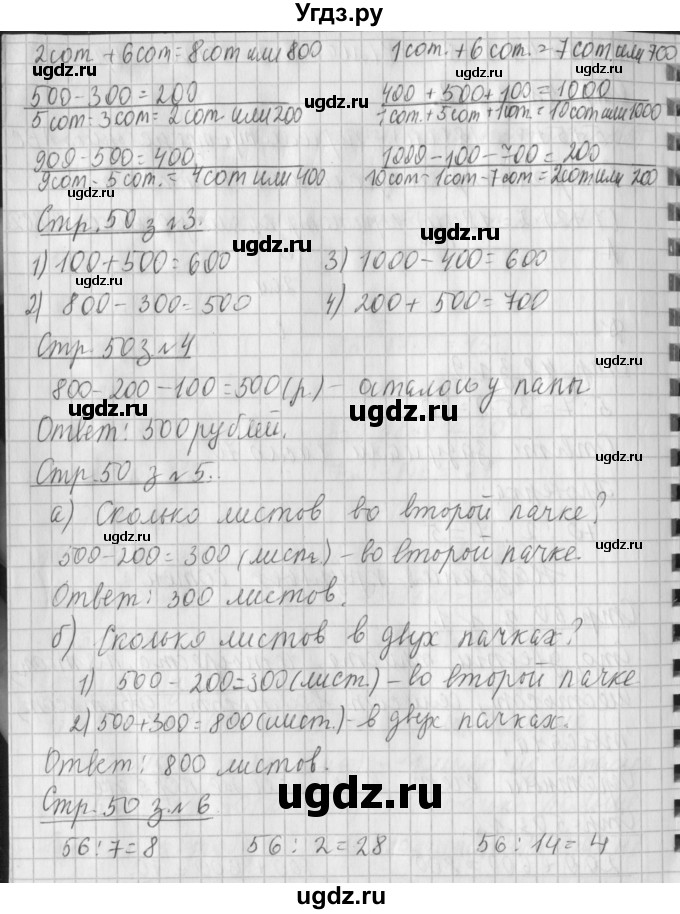 Угдз.ру
2 сот. + 6 сот = 8 сот или 800 1 сот. + 6 сот. = 7 сот. или 700
ugdz.ru ugdz.ru
500 - 300 = 200 400 + 500 + 100 = 1000
ugdz.ru ugdz.ru
5 сот - 3 сот = 2 сот или 200 4 сот. + 5 сот + 1 сот. = 10 сот или 1000
900 - 500 = 400 1000 - 100 - 700 = 200
9 сот - 5 сот. = 4 сот или 400 10 сот - 1 сот - 7 сот = 2 сот или 200
ugdz.ru
Стр. 50 з №3.
ugdz.ru ugdz.ru
1) 100 + 500 = 600 3) 1000 - 400 = 600
ugdz.ru
2) 800 - 300 = 500 4) 200 + 500 = 700
Стр. 50 з №4
ugdz.ru
800 - 200 - 100 = 500 (р.) - осталось у папы
ugdz.ru ugdz.ru
Ответ: 500 рублей.
Стр. 50 з №5.
ugdz.ru
а) Сколько листов во второй пачке?
ugdz.ru ugdz.ru
500 - 200 = 300 (лист.) - во второй пачке.
Ответ: 300 листов.
ugdz.ru
б) Сколько листов в двух пачках?
ugdz.ru
1) 500 - 200 = 300 (лист.) - во второй пачке
2) 500 + 300 = 800 (лист.) - в двух пачках.
ugdz.ru
Ответ: 800 листов.
ugdz.ru
Стр. 50 з. №6
ugdz.ru
56 : 7 = 8 56 : 2 = 28 56 : 14 = 4
ugdz.ru
ugdz.ru